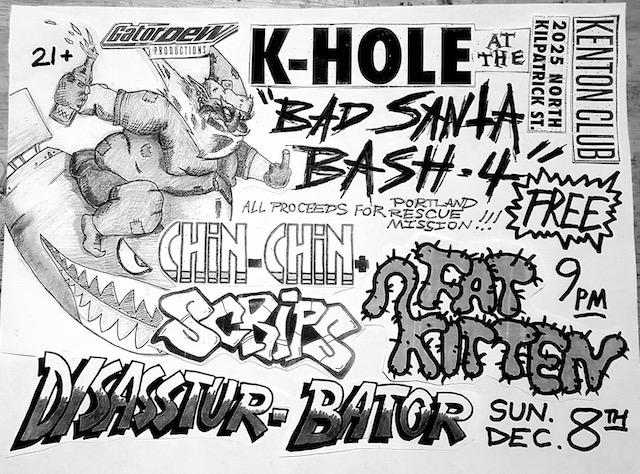 21+
GatorDew
PRODUCTIONS
K-HOLE
AT
THE
KENTON CLUB
2025 NORTH
KILPATRICK ST.
"BAD SANTA
BASH-4"
FREE
ALL PROCEEDS FOR PORTLAND
RESCUE
MISSION...!!!
CHiN-CHiN+
SCRIPS
FAT
KITTEN
9
PM
DISASSTUR-BATOR
SUN.
DEC. 8TH